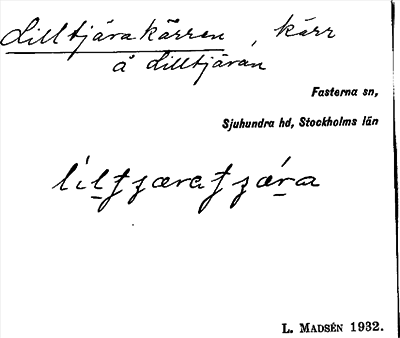 Lilltjärakärren, kärr
å Lilltjäran
Fasterna sn,
Sjuhundra hd, Stockholms län
L. MADSÉN 1932.